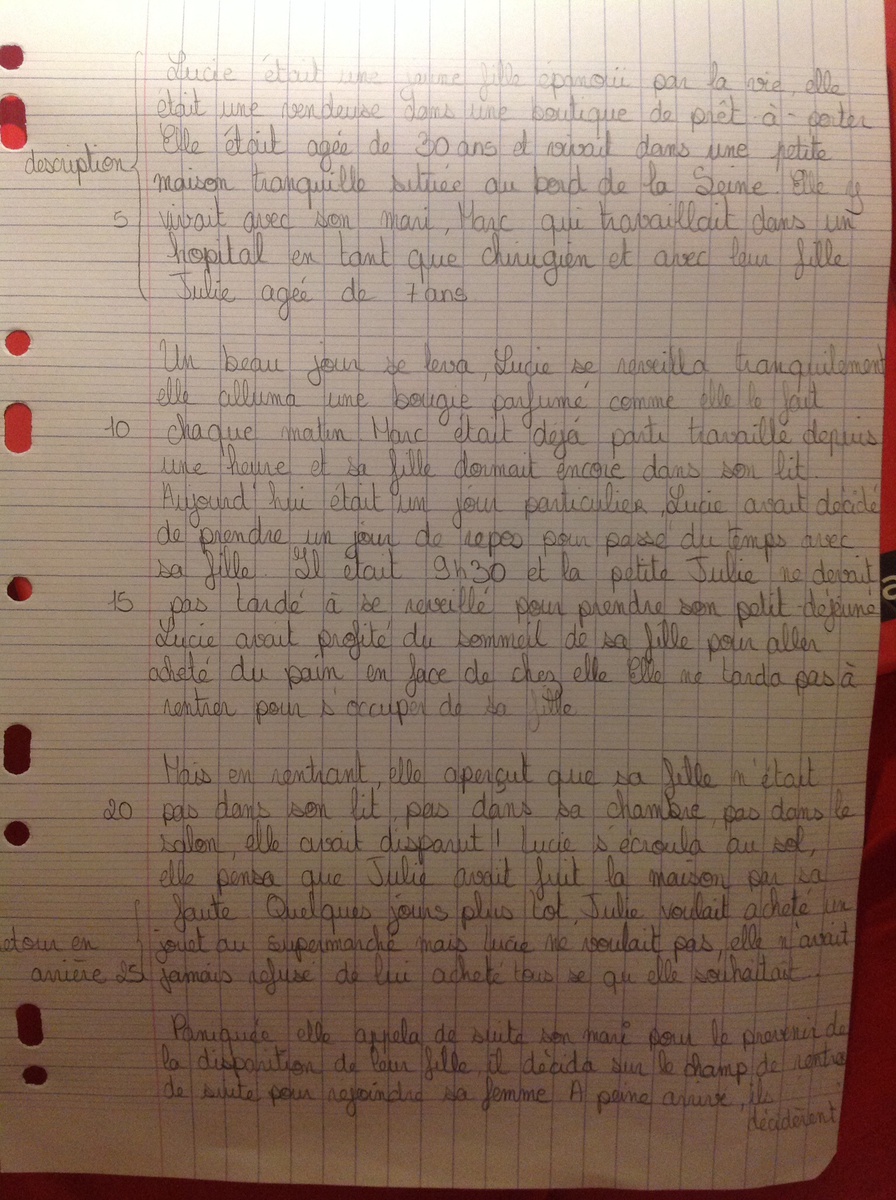 Lucie était une jeune fille épanouii par la vie, elle
était une vendeuse dans une boutique de prêt-à-porter
Elle était agée de 30 ans et vivait dans une petite
description
maison tranquille situiée au bord de la Seine. Elle y
5 vivait avec son mari, Marc qui travaillait dans un
hopital en tant que chirugien et avec leur fille
Julie agée de 7 ans
Un beau jour se leva, Lucie se reveilla tranquilement
elle alluma une bougie parfumé comme elle le fait
10 chaque matin Marc était déjá parti travaillé depuis
une heure et sa fille dormait encore dans son lit.
Aujourd'hui était un jour particulier, Lucie avait décidé
de prendre un jour de repos pour passé du temps avec
sa fille. Il était 9h30 et la petite Julie ne devait
15 pas tardé à se reveillé pour prendre son petit-déjeuné
Lucie avait profité du sommeil de sa fille pour aller
acheté du pain en face de chez elle Elle ne tarda pas à
rentrer pour s'occuper de sa fille
Mais en rentrant, elle aperçut que sa fille n'était
20 pas dans son lit, pas dans sa chambre, pas dans le
salon, elle avait disparut ! Lucie s'écroula au sol,
elle pensa que Julie avait fuit la maison par sa
faute. Quelques jours plus tot, Julie voulait acheté un
etour en jouet au supermarché mais Lucie ne voulait pas, elle n'avait
arrière 25 jamais refusé de lui acheté tous se qu'elle souhaitait.
Paniquée elle appela de suite son mari pour le prevenir de
la disparition de leur fille, il décida sur le champ de rentre
de suite pour rejoindre sa femme A peine arrivé, ils
décidèrent